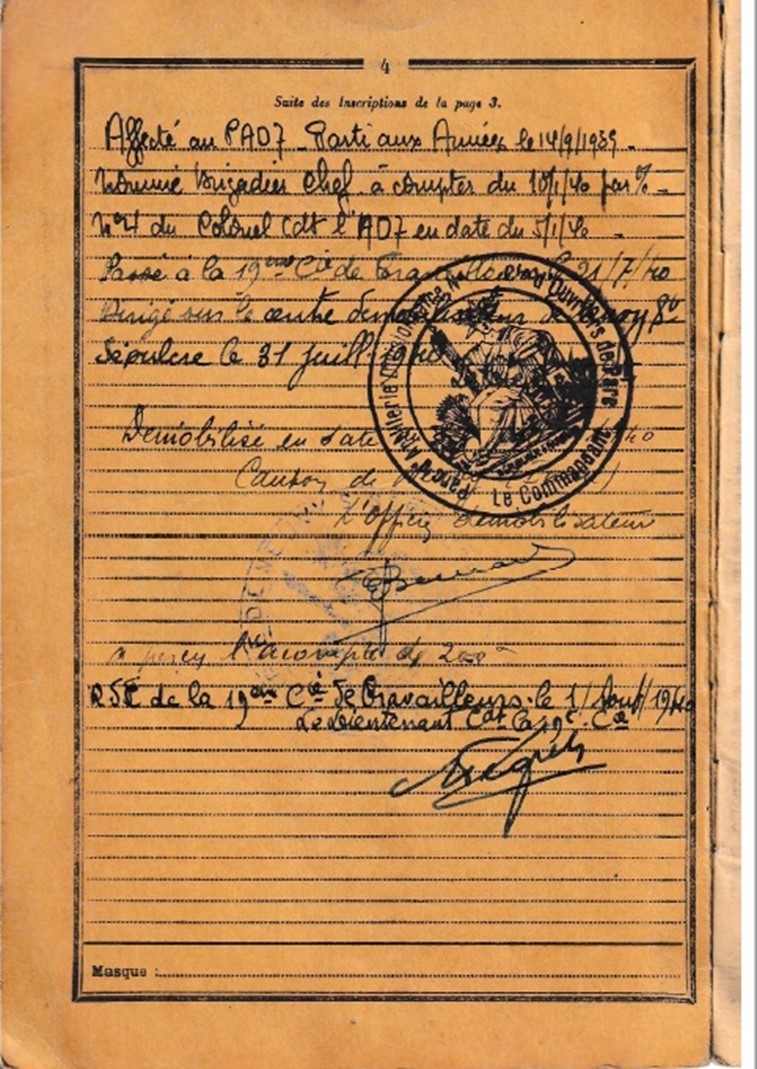 4
Suite des Inscriptions de la page 3.
Affecté au PAD7 _ Parti aux Armées le 14/9/1939 _
Nommé Brigadier Chef à compter du 10/1/40 par %
N°4 du Colonel Cdt l'AD7 en date du 5/1/40 _
Passé à la 19ème Cie de 21/7/40
Dirigé sur le centre démobilisateur de Sr
Sépulcre le 31 juillet 1940
Démobilisé en date
Canton de
L'Officier démobilisateur
Parc d'Artillerie Divisionnaire N° Ouvriers de Parc
Le Commandant
perçu l'acompte de 200
RSC de la 19ème Cie de Travailleurs le 1/Aout/1940
Le Lieutenant Cdt la 19e Cie
Masque :